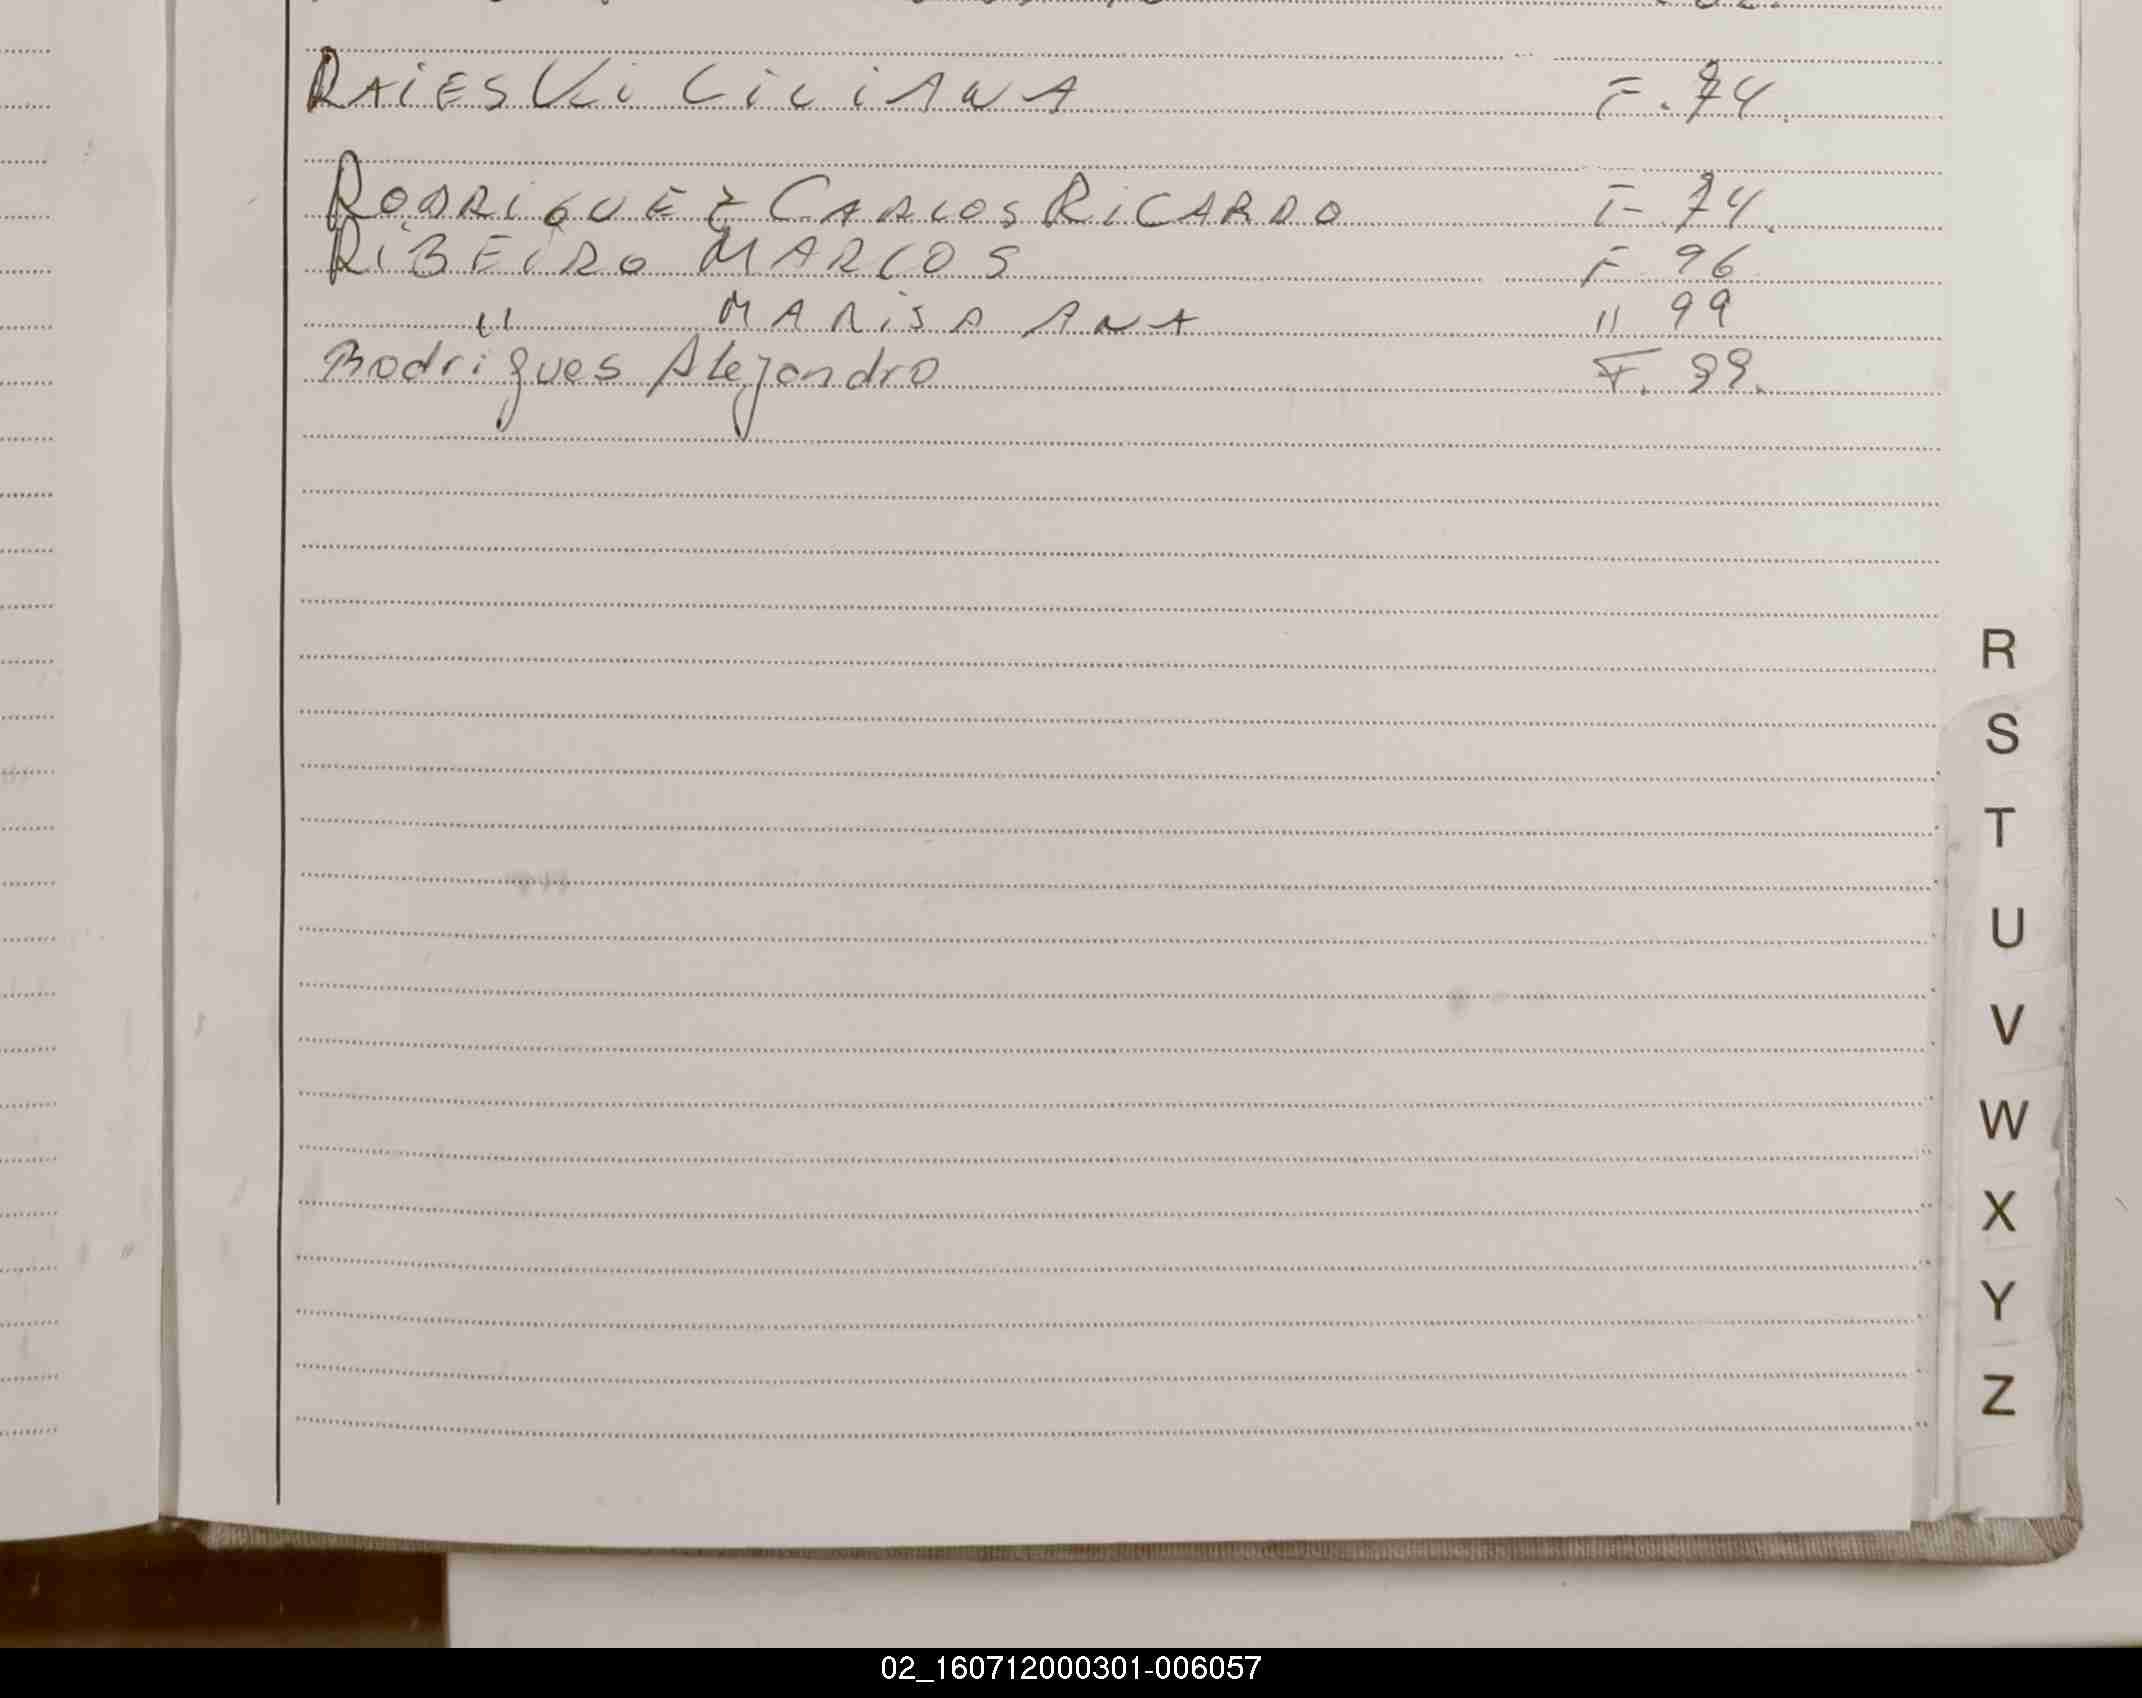 RAiES Vi LiLiANA F. 74.
RODRIGUEZ CARLOS RiCARDO F. 74.
RiBEiRO MARCOS F 96
" MARiSA ANA " 99
Rodrigues Alejandro F. 99.
R
S
T
U
V
W
X
Y
Z
02_160712000301-006057